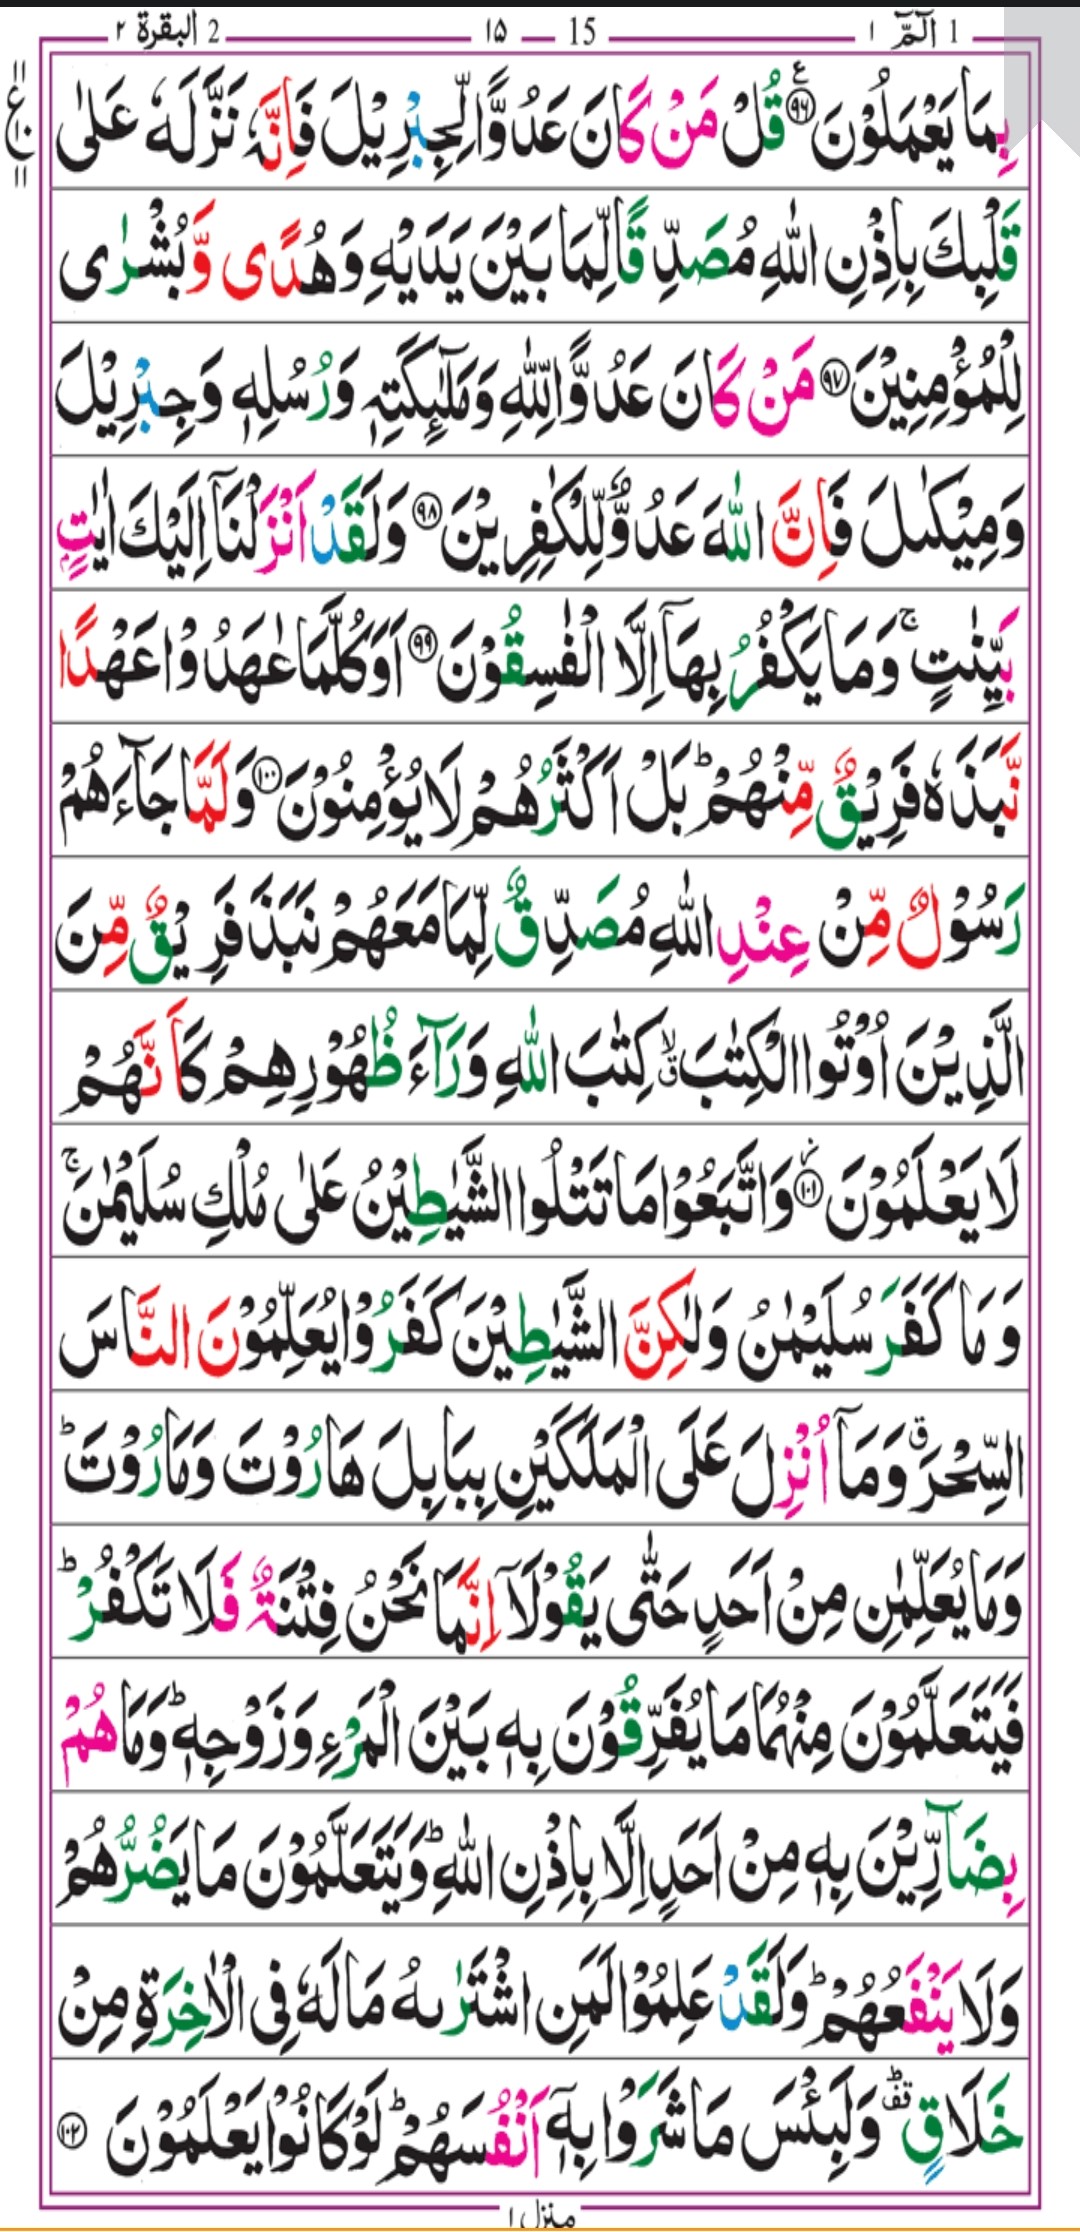 1 الٓمّٓ ١ 15 — ١٥ 2 البقرة ٢
بِمَا يَعْمَلُوْنَ ﴿٩٦﴾ ع قُلْ مَنْ كَانَ عَدُوًّا لِّجِبْرِيْلَ فَاِنَّهٗ نَزَّلَهٗ عَلٰى
قَلْبِكَ بِاِذْنِ اللّٰهِ مُصَدِّقًا لِّمَا بَيْنَ يَدَيْهِ وَهُدًى وَّبُشْرٰى
لِلْمُؤْمِنِيْنَ ﴿٩٧﴾ مَنْ كَانَ عَدُوًّا لِّلّٰهِ وَمَلٰٓئِكَتِهٖ وَرُسُلِهٖ وَجِبْرِيْلَ
وَمِيْكٰىلَ فَاِنَّ اللّٰهَ عَدُوٌّ لِّلْكٰفِرِيْنَ ﴿٩٨﴾ وَلَقَدْ اَنْزَلْنَاۤ اِلَيْكَ اٰيٰتٍۭ
بَيِّنٰتٍ ۚ وَمَا يَكْفُرُ بِهَاۤ اِلَّا الْفٰسِقُوْنَ ﴿٩٩﴾ اَوَكُلَّمَا عٰهَدُوْا عَهْدًا
نَّبَذَهٗ فَرِيْقٌ مِّنْهُمْ ؕ بَلْ اَكْثَرُهُمْ لَا يُؤْمِنُوْنَ ﴿١٠٠﴾ وَلَمَّا جَآءَهُمْ
رَسُوْلٌ مِّنْ عِنْدِ اللّٰهِ مُصَدِّقٌ لِّمَا مَعَهُمْ نَبَذَ فَرِيْقٌ مِّنَ
الَّذِيْنَ اُوْتُوا الْكِتٰبَ ۙۗ كِتٰبَ اللّٰهِ وَرَآءَ ظُهُوْرِهِمْ كَاَنَّهُمْ
لَا يَعْلَمُوْنَ ﴿١٠١﴾ وَاتَّبَعُوْا مَا تَتْلُوا الشَّيٰطِيْنُ عَلٰى مُلْكِ سُلَيْمٰنَ ۚ
وَمَا كَفَرَ سُلَيْمٰنُ وَلٰكِنَّ الشَّيٰطِيْنَ كَفَرُوْا يُعَلِّمُوْنَ النَّاسَ
السِّحْرَ ۗ وَمَاۤ اُنْزِلَ عَلَى الْمَلَكَيْنِ بِبَابِلَ هَارُوْتَ وَمَارُوْتَ ؕ
وَمَا يُعَلِّمٰنِ مِنْ اَحَدٍ حَتّٰى يَقُوْلَاۤ اِنَّمَا نَحْنُ فِتْنَةٌ فَلَا تَكْفُرْ ؕ
فَيَتَعَلَّمُوْنَ مِنْهُمَا مَا يُفَرِّقُوْنَ بِهٖ بَيْنَ الْمَرْءِ وَزَوْجِهٖ ؕ وَمَا هُمْ
بِضَآرِّيْنَ بِهٖ مِنْ اَحَدٍ اِلَّا بِاِذْنِ اللّٰهِ ؕ وَيَتَعَلَّمُوْنَ مَا يَضُرُّهُمْ
وَلَا يَنْفَعُهُمْ ؕ وَلَقَدْ عَلِمُوْا لَمَنِ اشْتَرٰىهُ مَا لَهٗ فِى الْاٰخِرَةِ مِنْ
خَلَاقٍ ۟ؕ وَلَبِئْسَ مَا شَرَوْا بِهٖۤ اَنْفُسَهُمْ ؕ لَوْ كَانُوْا يَعْلَمُوْنَ ﴿١٠٢﴾
منزل ١